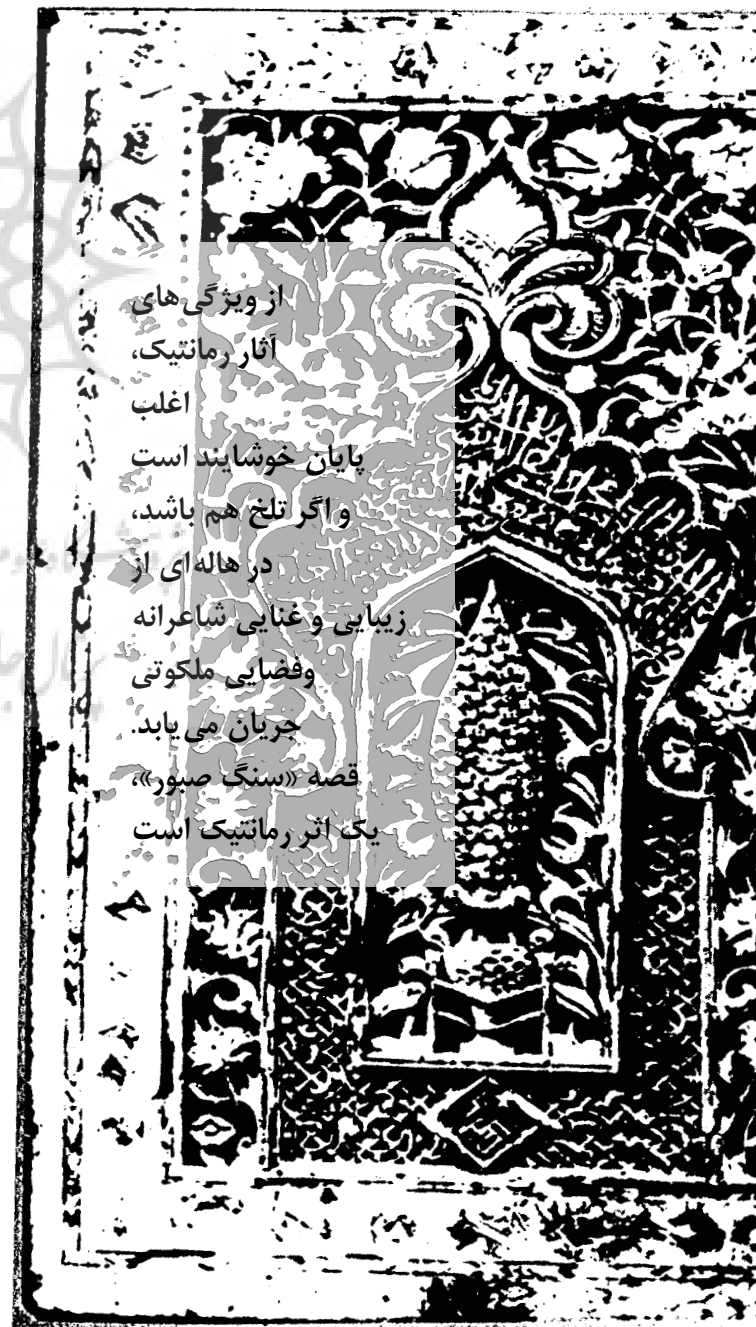 از ویژگی‌های
آثار رمانتیک،
اغلب
پایان خوشایند است
و اگر تلخ هم باشد،
در هاله‌ای از
زیبایی و غنایی شاعرانه
وفضایی ملکوتی
جریان می‌یابد.
قصه «سنگ صبور»،
یک اثر رمانتیک است